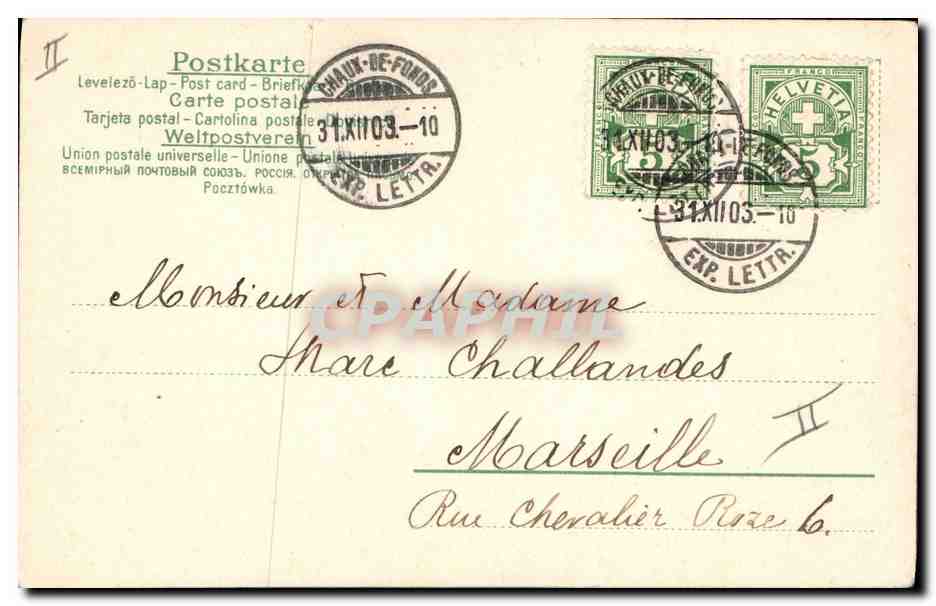 II
Postkarte
Levelező-Lap - Post card - Briefk
Carte postale
Tarjeta postal - Cartolina postale
Weltpostverein
Union postale universelle - Unione postale
ВСЕМІРНЫЙ ПОЧТОВЫЙ СОЮЗЪ. РОССІЯ.
Pocztówka.
CHAUX-DE-FONDS
31.XII.03.-10
EXP. LETTR.
CHAUX-DE-FONDS
31.XII.03.-10
5
FRANCO
HELVETIA
5
CHAUX-DE-FONDS
31.XII.03.-10
EXP. LETTR.
Monsieur et Madame
CPAPHIL
Marc Challandes
Marseille
II
Rue Chevalier Roze 6.